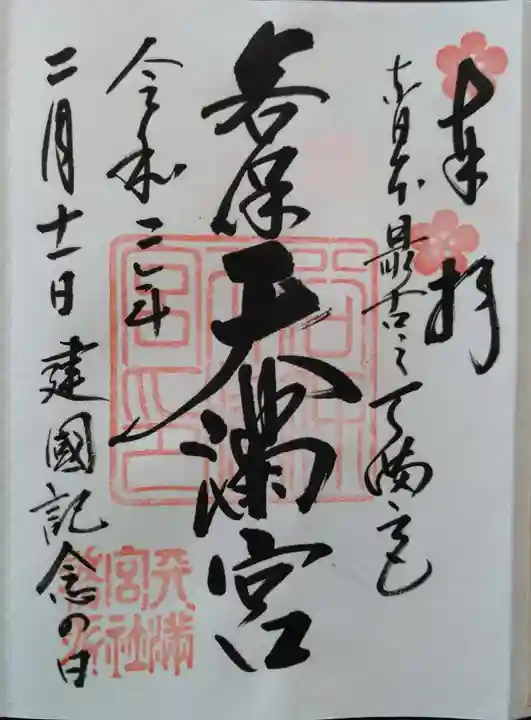 奉拝
東日本最古之天満宮
谷保天満宮
令和二年
二月十一日 建國記念の日
天満
宮社
務所